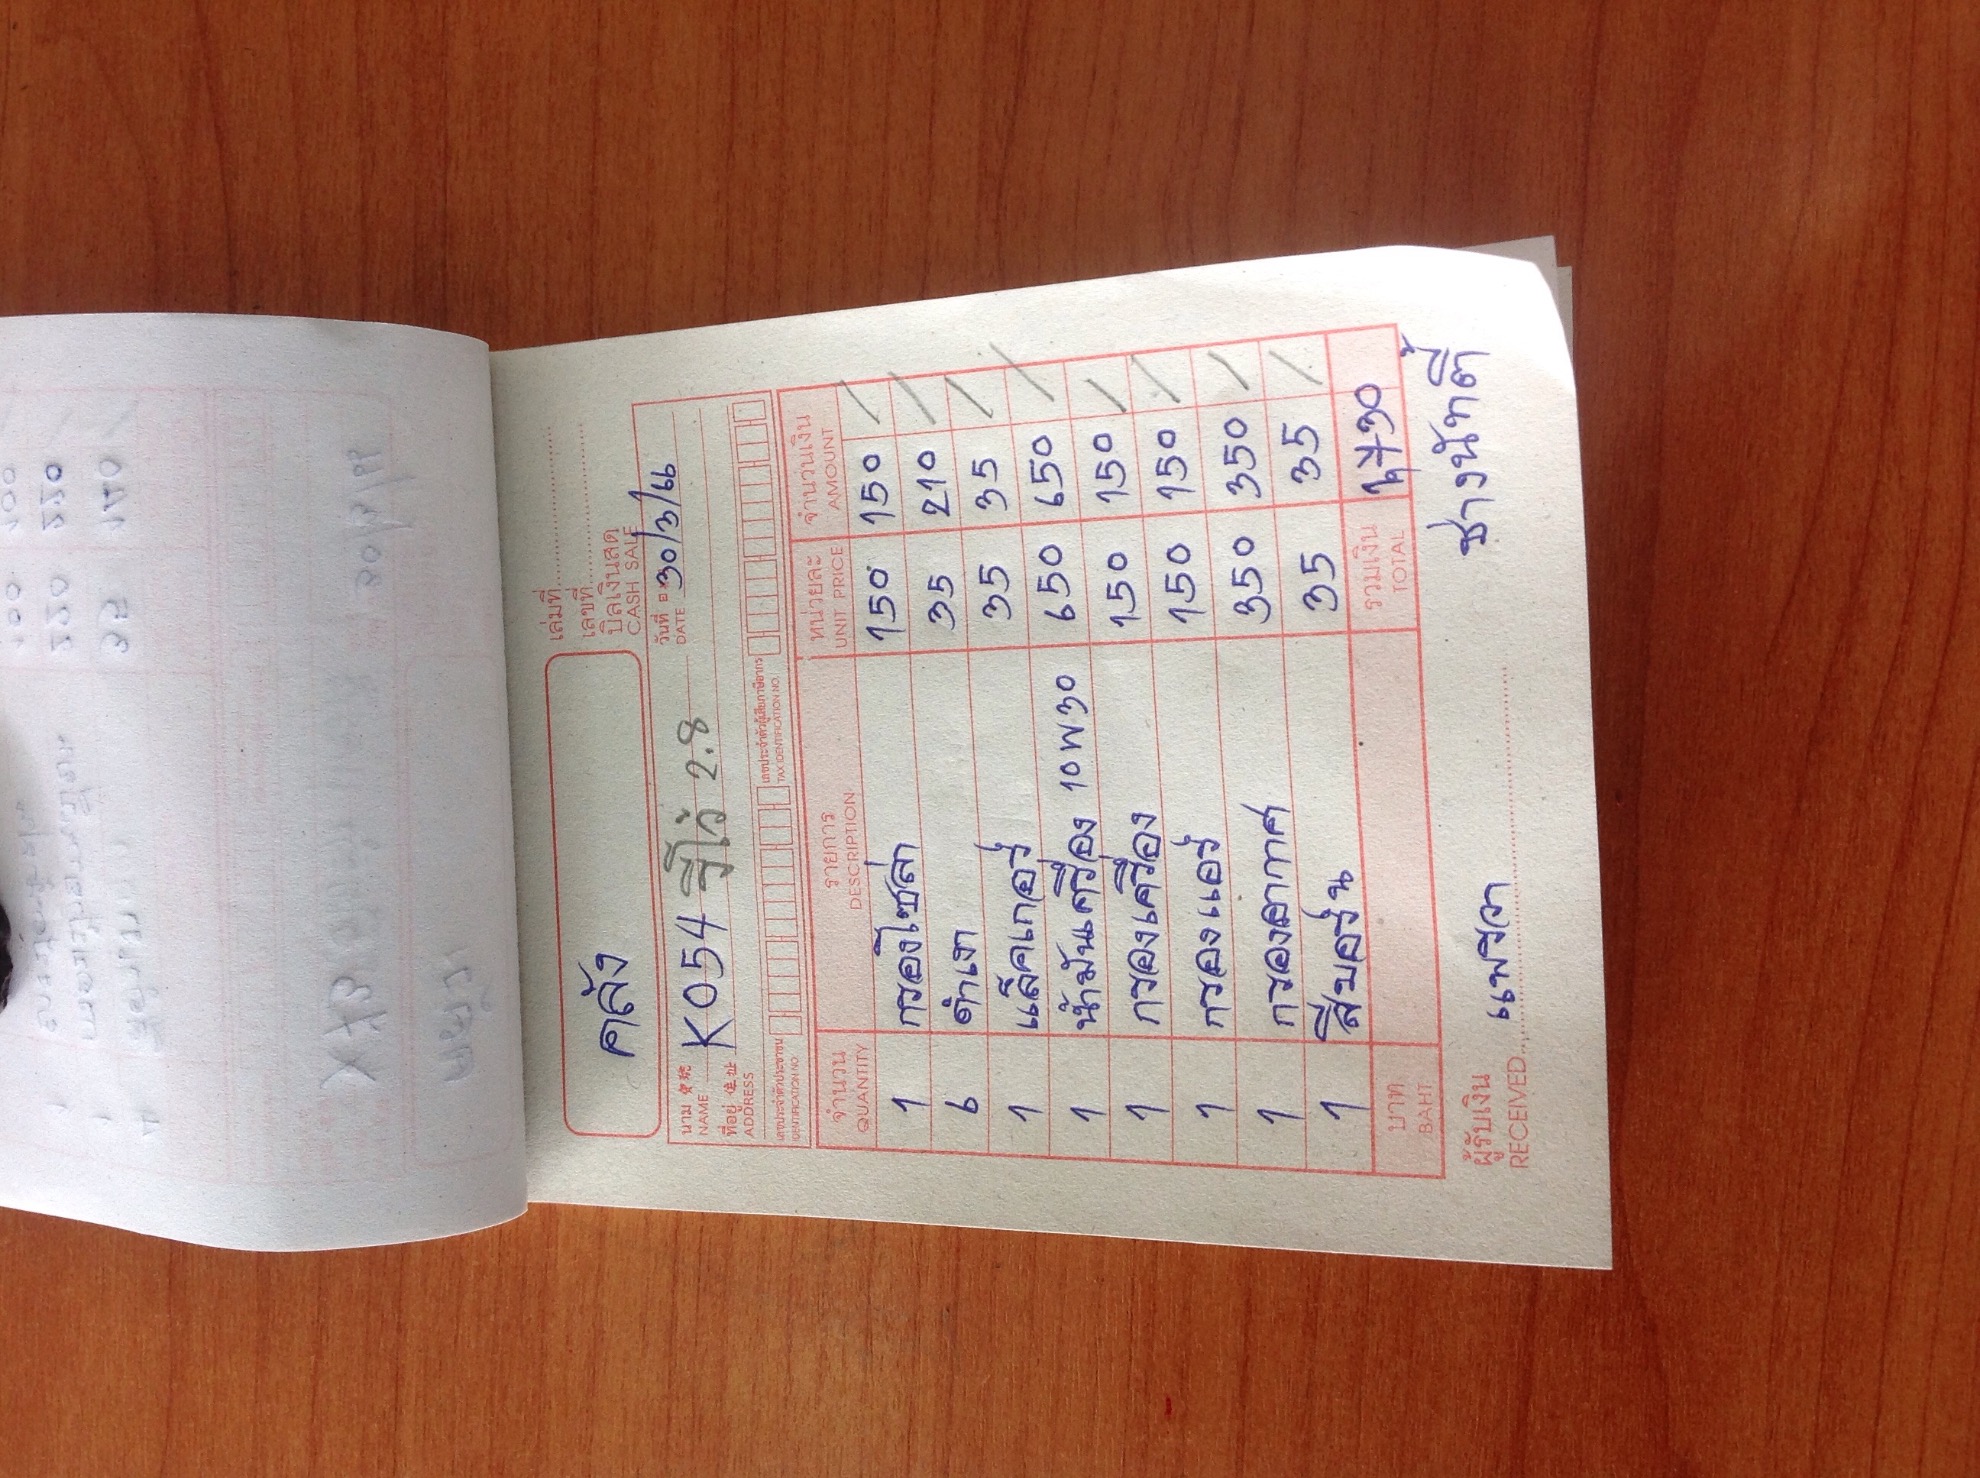 เล่มที่
เลขที่
บิลเงินสด
CASH SALE
คลัง
นาม NAME K054 วีโก้ 2.8
วันที่ DATE 30/3/66
ที่อยู่ 住址 ADDRESS
เลขประจำตัวประชาชน IDENTIFICATION NO.
เลขประจำตัวผู้เสียภาษีอากร TAX IDENTIFICATION NO.
จำนวน QUANTITY รายการ DESCRIPTION หน่วยละ UNIT PRICE จำนวนเงิน AMOUNT
1 กรองโซล่า 150 150 /
6 ดำเงา 35 210 /
1 แล็คเกอร์ 35 35 /
1 น้ำมันเครื่อง 10W30 650 650 /
1 กรองเครื่อง 150 150 /
1 กรองแอร์ 150 150 /
1 กรองอากาศ 350 350 /
1 สีบอร์น 35 35 /
บาท BAHT รวมเงิน TOTAL 1,730
ผู้รับเงิน RECEIVED แพรวา